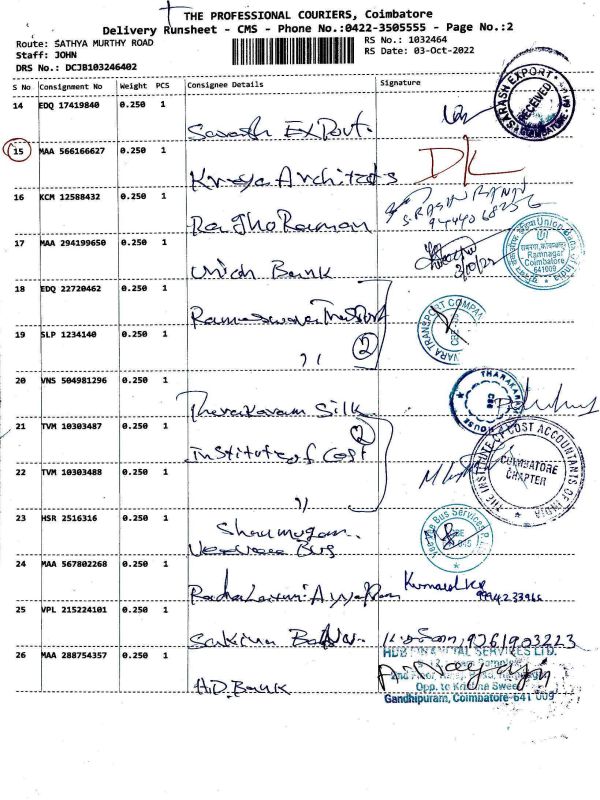 THE PROFESSIONAL COURIERS, Coimbatore
Delivery Runsheet - CMS - Phone No.:0422-3505555 - Page No.:2
Route: SATHYA MURTHY ROAD
RS No.: 1032464
Staff: JOHN
RS Date: 03-Oct-2022
DRS No.: DCJB103246402
S No Consignment No Weight PCS Consignee Details Signature
14 EDQ 17419840 0.250 1
SARASH EXPORT RECEIVED COIMBATORE
15 MAA 566166627 0.250 1
DK
16 KCM 12588432 0.250 1
17 MAA 294199650 0.250 1
Union Bank
3/10/22
Union Bank of India
Ramnagar
Coimbatore
641009
18 EDQ 22720462 0.250 1
19 SLP 1234140 0.250 1
11 2
20 VNS 504981296 0.250 1
Silk
21 TVM 10303487 0.250 1
Institute of Cost 2
THE INSTITUTE OF COST ACCOUNTANTS OF INDIA
COIMBATORE
CHAPTER
22 TVM 10303488 0.250 1
11
23 HSR 2516316 0.250 1
Bus
24 MAA 567802268 0.250 1
25 VPL 215224101 0.250 1
26 MAA 288754357 0.250 1
H.D. Bank
HDB FINANCIAL SERVICES LTD.
Gandhipuram, Coimbatore-641 009